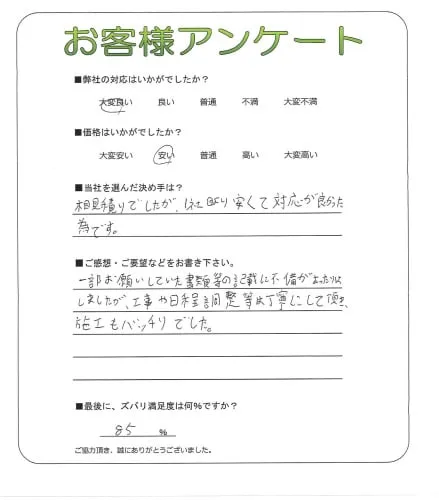 お客様アンケート
■弊社の対応はいかがでしたか?
大変良い 良い 普通 不満 大変不満
■価格はいかがでしたか?
大変安い 安い 普通 高い 大変高い
■当社を選んだ決め手は?
相見積りでしたが、他社より安くて対応が良かった
為です。
■ご感想・ご要望などをお書き下さい。
一部お願いしていた書類等の記載に不備があったりは
しましたが、工事や日程調整等は丁寧にして頂き、
施工もバッチリでした。
■最後に、ズバリ満足度は何%ですか?
85 %
ご協力頂き、誠にありがとうございました。